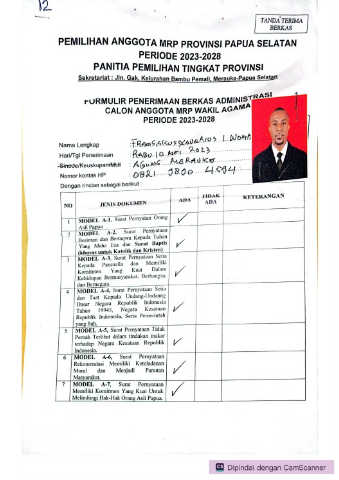 12
TANDA TERIMA
BERKAS
PEMILIHAN ANGGOTA MRP PROVINSI PAPUA SELATAN
PERIODE 2023-2028
PANITIA PEMILIHAN TINGKAT PROVINSI
Sekretariat : Jln. Gak, Kelurahan Bambu Pemali, Merauke-Papua Selatan
FORMULIR PENERIMAAN BERKAS ADMINISTRASI
CALON ANGGOTA MRP WAKIL AGAMA
PERIODE 2023-2028
Nama Lengkap
Hari/Tgl Penerimaan : RABU 10 MEI 2023
Sinode/Keuskupan/MUI : AGUNG MERAUKE
Nomor kontak HP : 0821 9800 4594
Dengan rincian sebagai berikut :
NO JENIS DOKUMEN ADA TIDAK ADA KETERANGAN
1 MODEL A-1, Surat Pernyataan Orang
Asli Papua ✓
2 MODEL A-2, Surat Pernyataan
Beriman dan Bertaqwa Kepada Tuhan
Yang Maha Esa dan Surat Baptis
(khusus untuk Katolik dan Kristen) ✓
3 MODEL A-3, Surat Pernyataan Setia
Kepada Pancasila dan Memiliki
Komitmen Yang Kuat Dalam
Kehidupan Bermasyarakat, Berbangsa
dan Bernegara. ✓
4 MODEL A-4, Surat Pernyataan Setia
dan Taat Kepada Undang-Undang
Dasar Negara Republik Indonesia
Tahun 1945, Negara Kesatuan
Republik Indonesia, Serta Pemerintah
yang Sah. ✓
5 MODEL A-5, Surat Pernyataan Tidak
Pernah Terlibat dalam tindakan makar
terhadap Negara Kesatuan Republik
Indonesia. ✓
6 MODEL A-6, Surat Pernyataan
Rekomendasi Memiliki Keteladanan
Moral dan Menjadi Panutan
Masyarakat. ✓
7 MODEL A-7, Surat Pernyataan
Memiliki Komitmen Yang Kuat Untuk
Melindungi Hak-Hak Orang Asli Papua. ✓
Dipindai dengan CamScanner